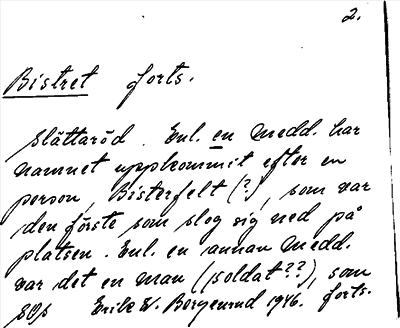 2.
Bistret forts.
Slättaröd. Enl. en medd. har
namnet uppkommit efter en
person, Bisterfelt (?), som var
den förste som slog sig ned på
platsen. Enl. en annan medd.
var det en man (soldat??), som
Erik W. Borgenrud 1946. forts.